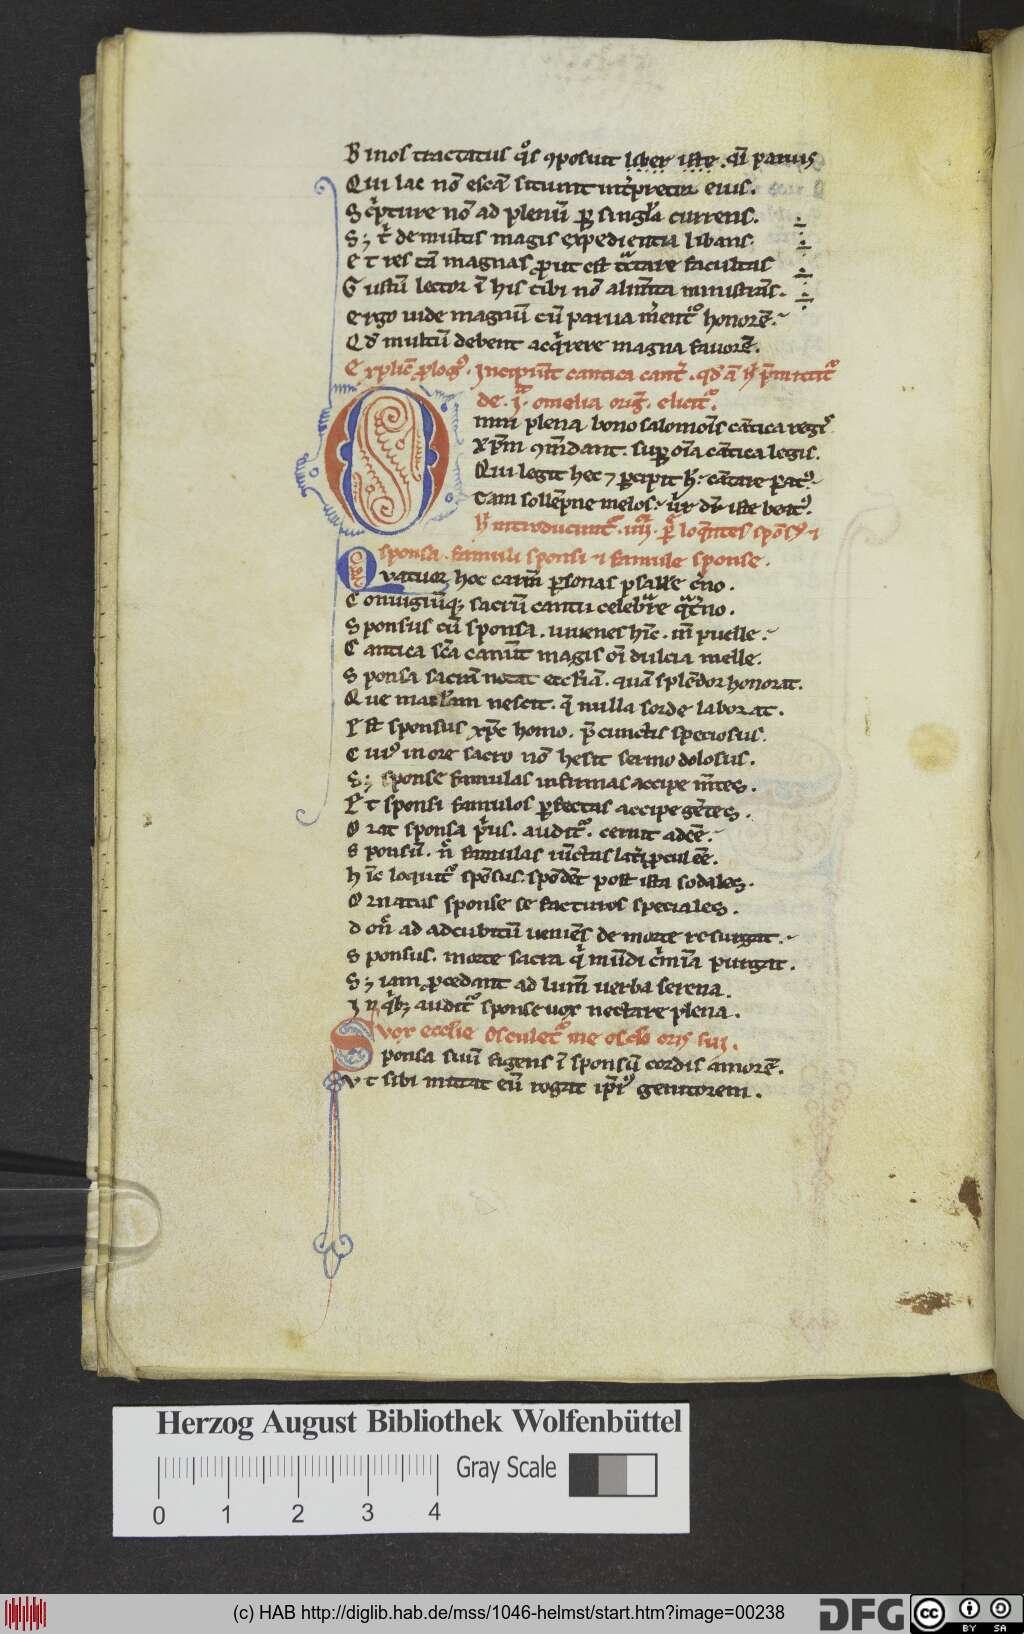 Binos tractatus q̊s ꝯposuit liber iste. qͥ paruis
Qui lac nō escā sitiunt int̄pretat eius.
Sc̓pture nō ad plenū ꝑ singl̓a currens.
Sꝫ t̄ de multis magis expedientia libans.
Et res tā magnas ꝓut est tͣctare facultas
Gustū lector ī his cibi nō alim̄ta ministrās.
ergo uide magnū cū parua m̓entͦ honorē.
Qd̓ multū debent acq̓rere magna fauorē.
Explic̄ ꝓlogꝰ. Incipiūt cantica cant̓. qd̓ ā h̓ p̄mittit᷑
de. j. omelia orig̓. elicit᷑.
Omni plena bono salomōis cātica regis
Xp̄m ꝯm̄dant. suꝑ oīa cātica legis.
Qui legit hec ⁊ ꝑcipit h̓. cātare ꝑatꝰ
Tam sollēpne melos. u̓e dr̄ iste beatꝰ.
h̓ introducunt᷑. iiij. ꝑ loq̄ntes spōsꝰ ⁊
sponsa. famuli sponsi ⁊ famule sponse.
Quatuor hoc carm̄ ꝑsonas psalle̓ c̓no.
Conuigiūqꝫ sacrū cantu celebrͣe qͣt̓no.
Sponsus cū sponsa. iuuenes hīc. īn puelle.
Cantica sc̄a canūt magis oī dulcia melle.
Sponsa sacrā notat eccl̓iā. quā splēdor honorat.
Que maclam nescit. q̓ nulla sorde laborat.
Est sponsus xp̄c homo. p̄ cunctis speciosus.
Cuiꝰ in ore sacro nō hesit sermo dolosus.
Sꝫ sponse famulas infirmas accipe m̄tes.
Et sponsi famulos ꝑfectas accipe gētes.
Orat sponsa p̓us. audit᷑. cernit adeē.
Sponsū. n̄ famulas iūctas lat̓i ꝓcul eē.
hīc loquit᷑ spōsus. spōdēt post ista sodales.
Ornatus sponse se facturos speciales.
donͨ ad adcubitū ueniēs de morte resurgat.
Sponsus. morte sacra q̓ mūdi c̓mīa purgat.
Sꝫ iam ꝓcedant ad lum̄ uerba serena.
In q̓bꝫ audit᷑ sponse uox nectare plena.
Vox ecclie Osculet᷑ me osclo oris sui.
Sponsa suū figens ī sponsū cordis amorē.
Vt sibi mittat eū rogat ip̄iꝰ genitorem.
Herzog August Bibliothek Wolfenbüttel
Gray Scale
0 1 2 3 4
(c) HAB http://diglib.hab.de/mss/1046-helmst/start.htm?image=00238
DFG
cc BY SA